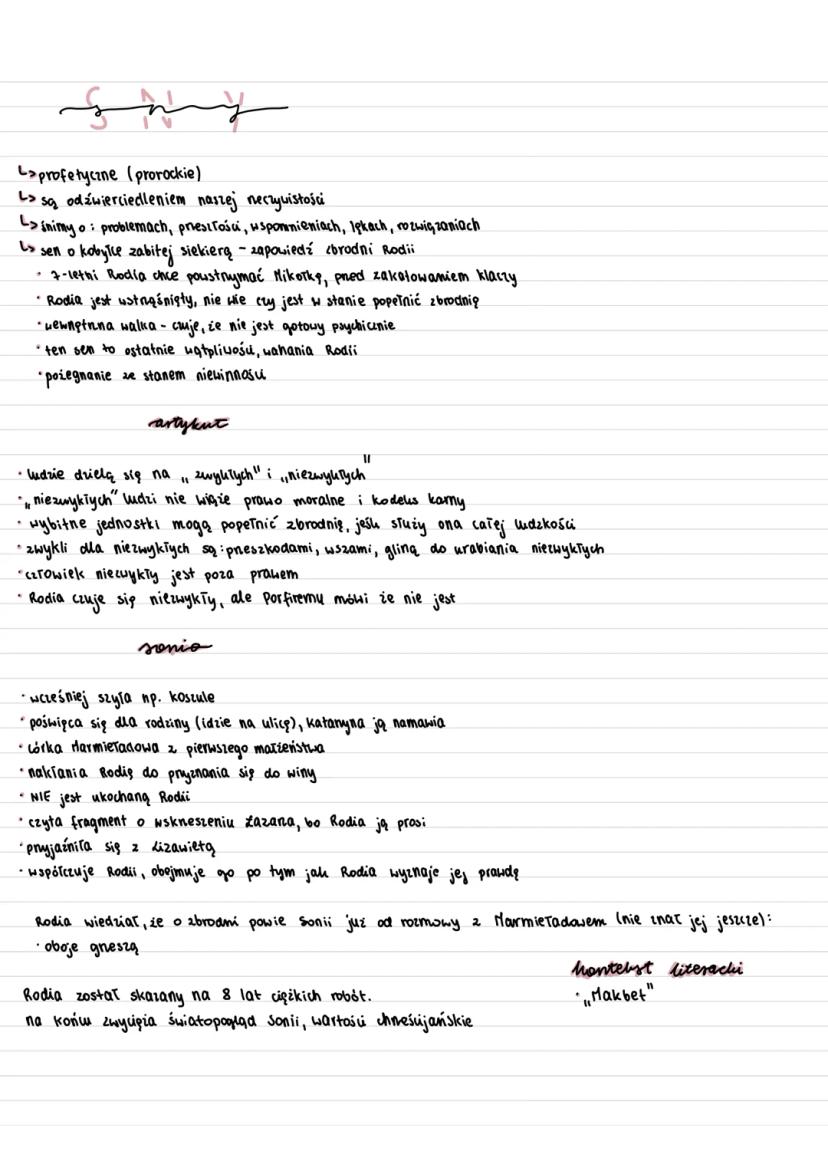 sny
↳ profetyczne (prorockie)
↳ są odzwierciedleniem naszej rzeczywistości
↳ śnimy o: problemach, przeszłości, wspomnieniach, lękach, rozwiązaniach
↳ sen o kobyłce zabitej siekierą - zapowiedź zbrodni Rodii
• 7-letni Rodia chce powstrzymać Mikołkę, przed zakatowaniem klaczy
• Rodia jest wstrząśnięty, nie wie czy jest w stanie popełnić zbrodnię
• wewnętrzna walka - czuje, że nie jest gotowy psychicznie
• ten sen to ostatnie wątpliwości, wahania Rodii
• pożegnanie ze stanem niewinności
artykuł
• ludzie dzielą się na „zwykłych" i „niezwykłych"
• „niezwykłych" ludzi nie wiąże prawo moralne i kodeks karny
• wybitne jednostki mogą popełnić zbrodnię, jeśli służy ona całej ludzkości
• zwykli dla niezwykłych są: przeszkodami, wszami, gliną do urabiania niezwykłych
• człowiek niezwykły jest poza prawem
• Rodia czuje się niezwykły, ale Porfiremu mówi że nie jest
sonia
• wcześniej szyła np. koszule
• poświęca się dla rodziny (idzie na ulicę), Katarzyna ją namawia
• córka Marmieładowa z pierwszego małżeństwa
• nakłania Rodię do przyznania się do winy
• NIE jest ukochaną Rodii
• czyta fragment o wskrzeszeniu Łazarza, bo Rodia ją prosi
• przyjaźniła się z Lizawietą
• współczuje Rodii, obejmuje go po tym jak Rodia wyznaje jej prawdę
Rodia wiedział, że o zbrodni powie Sonii już od rozmowy z Marmieładowem (nie znał jej jeszcze):
• oboje grzeszą
kontekst literacki
• „Makbet"
Rodia został skazany na 8 lat ciężkich robót.
na końcu zwycięża światopogląd Sonii, wartości chrześcijańskie